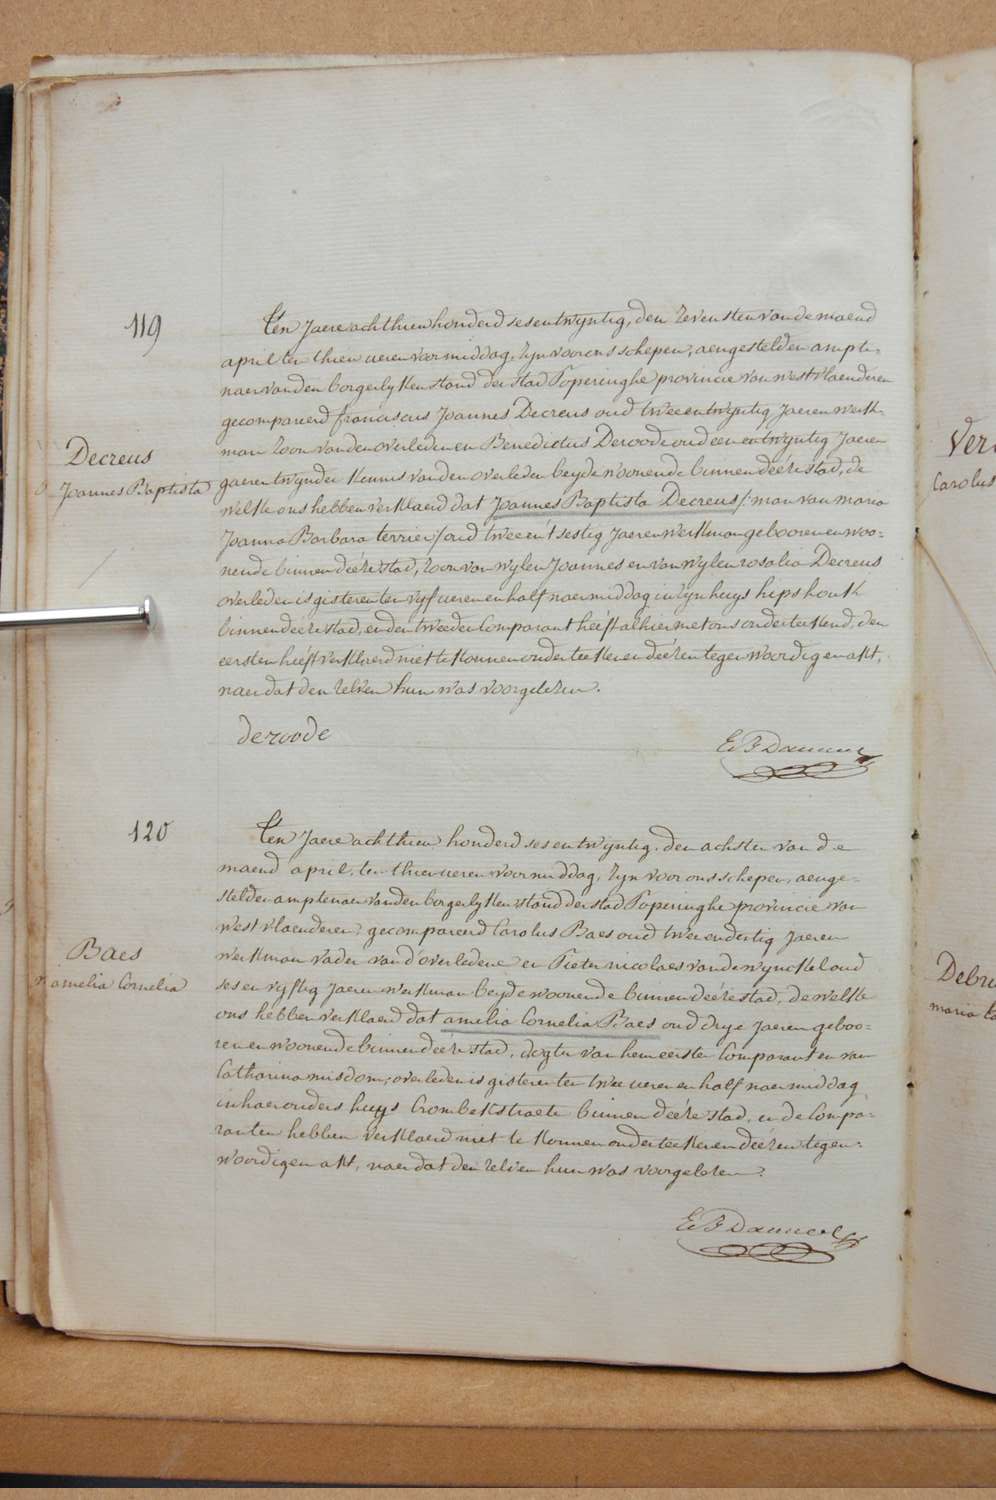 119
Decreus
Joannes Baptista
Ten Jaere achthien honderd ses en twyntig, den sevensten van de maend
april ten thien ueren voormiddag, zyn voor ons schepen, aengestelden ampte-
naer van den borgerlyken stand der stad Poperinghe provincie van westvlaenderen
gecompareerd franciscus Joannes Decreus oud twee en twyntig Jaeren werk-
man zoon van den overledenen en Benedictus Deroode oud een en twyntig Jaeren
gaerentwynder kennis van den overleden beyde woonende binnen deéze stad, de
welke ons hebben verklaerd dat Joannes Baptista Decreus /: man van maria
Joanna Barbara terrier / oud twee en t'sestig Jaeren werkman gebooren en woo-
nende binnen deéze stad, zoon van wylen Joannes en van wylen rosalia Decreus
overleden is gisteren ten vyf ueren en half naermiddag in zyn huys hipshoek
binnen deéze stad, en den tweeden Comparant heéft alhier met ons onderteekend, den
eersten heéft verklaerd niet te konnen onderteekenen deézen tegenwoordigen akt,
naer dat den zelven hun was voorgelezen.
deroode
120
Baes
amelia Cornelia
Ten Jaere achthien honderd ses en twyntig, den achsten van de
maend april, ten thien ueren voormiddag, zyn voor ons schepen, aenge-
stelden amptenaer van den borgerlyken stand der stad Poperinghe provincie van
westvlaenderen, gecompareerd Carolus Baes oud twee en dertig Jaeren
werkman vader van d'overledene en Pieter nicolaes vandewynckel oud
ses en vyftig Jaeren werkman beyde woonende binnen deéze stad, de welke
ons hebben verklaerd dat amelia Cornelia Baes oud drye Jaeren geboo-
ren en woonende binnen deéze stad, dogter van hem eersten Comparant en van
Catharina misdom, overleden is gisteren ten twee ueren en half naermiddag
in haer ouders huys Crombekstraete binnen deéze stad, en de Compa-
ranten hebben verklaerd niet te konnen onderteekenen deézen tegen-
woordigen akt, naer dat den zelven hun was voorgelezen.
Carolus
maria